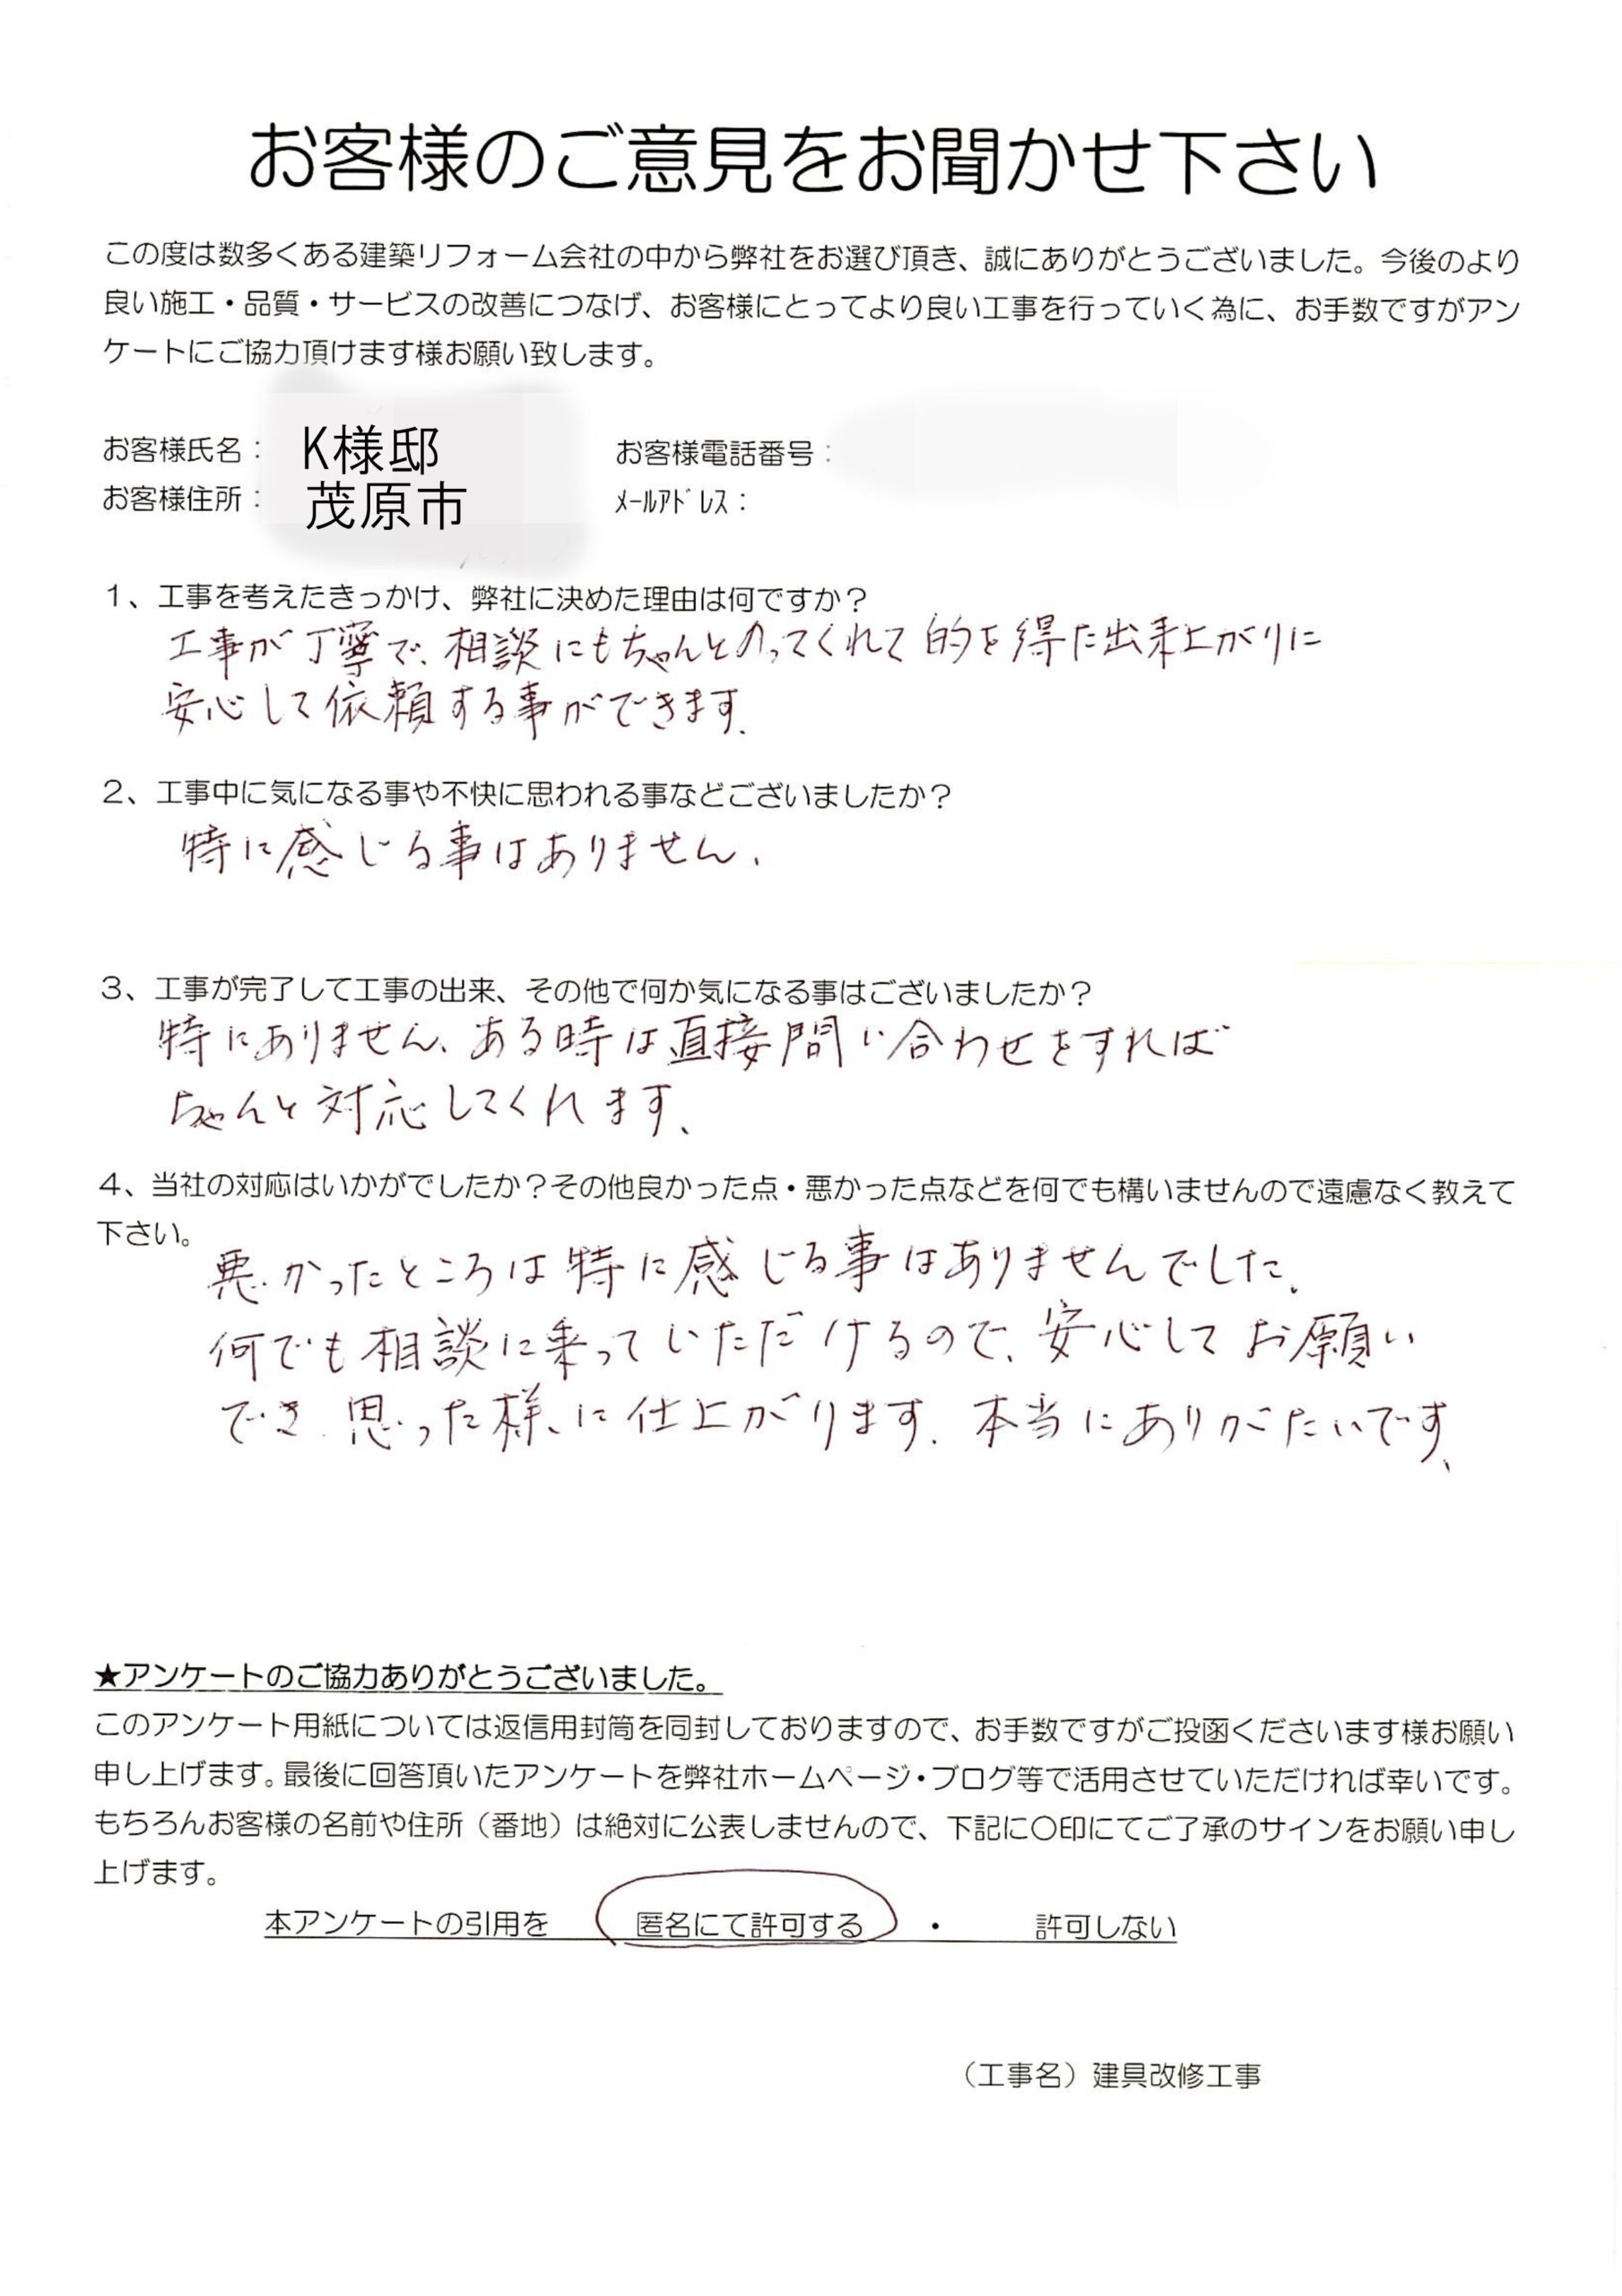 お客様のご意見をお聞かせ下さい
この度は数多くある建築リフォーム会社の中から弊社をお選び頂き、誠にありがとうございました。今後のより
良い施工・品質・サービスの改善につなげ、お客様にとってより良い工事を行っていく為に、お手数ですがアン
ケートにご協力頂けます様お願い致します。
お客様氏名： K様邸 お客様電話番号：
お客様住所： 茂原市 ﾒｰﾙｱﾄﾞﾚｽ：
1、工事を考えたきっかけ、弊社に決めた理由は何ですか？
工事が丁寧で、相談にもちゃんとのってくれて的を得た出来上がりに
安心して依頼する事ができます。
2、工事中に気になる事や不快に思われる事などございましたか？
特に感じる事はありません。
3、工事が完了して工事の出来、その他で何か気になる事はございましたか？
特にありません、ある時は直接問い合わせをすれば
ちゃんと対応してくれます、
4、当社の対応はいかがでしたか？その他良かった点・悪かった点などを何でも構いませんので遠慮なく教えて
下さい。
悪かったところは特に感じる事はありませんでした、
何でも相談に乗っていただけるので、安心してお願い
でき思った様に仕上がります。本当にありがたいです、
★アンケートのご協力ありがとうございました。
このアンケート用紙については返信用封筒を同封しておりますので、お手数ですがご投函くださいます様お願い
申し上げます。最後に回答頂いたアンケートを弊社ホームページ・ブログ等で活用させていただければ幸いです。
もちろんお客様の名前や住所（番地）は絶対に公表しませんので、下記に〇印にてご了承のサインをお願い申し
上げます。
本アンケートの引用を 匿名にて許可する ・ 許可しない
（工事名）建具改修工事